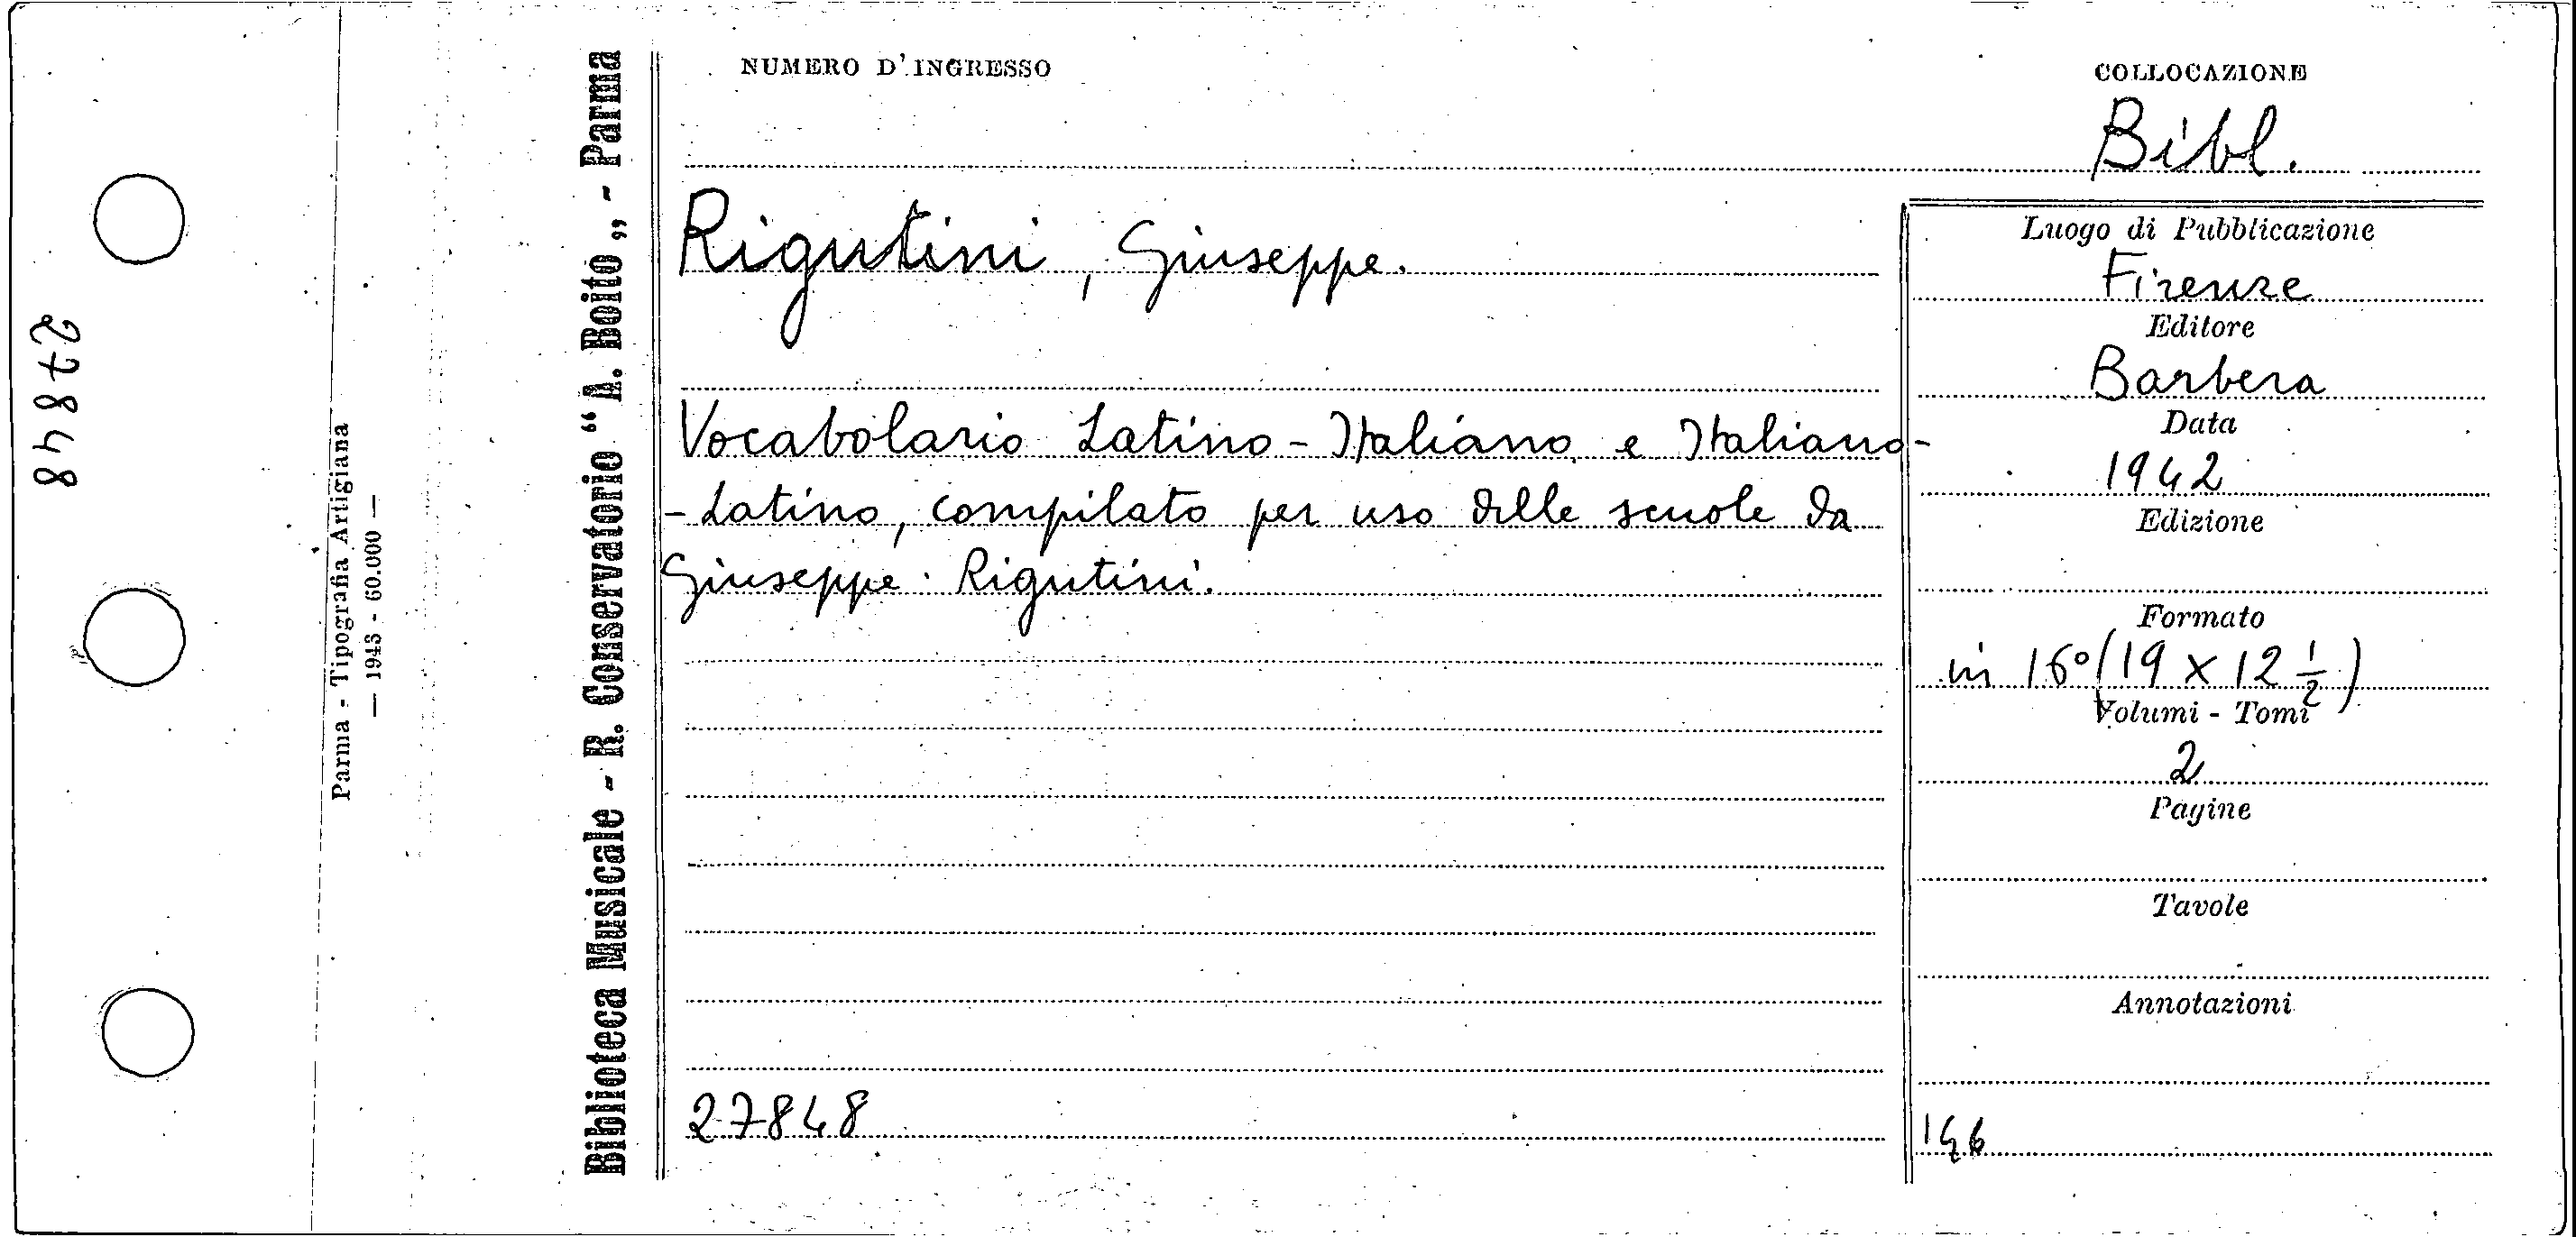 27848
Parma - Tipografia Artigiana
— 1943 - 60.000 —
Biblioteca Musicale - R. Conservatorio “A. Boito„ - Parma
NUMERO D'INGRESSO
COLLOCAZIONE
Bibl.
Rigutini, Giuseppe.
Vocabolario Latino - Italiano e Italiano-
- Latino, compilato per uso delle scuole da
Giuseppe Rigutini.
27848
Luogo di Pubblicazione
Firenze
Editore
Barbera
Data
1942
Edizione
Formato
in 16° (19 x 12 ½)
Volumi - Tomi
2
Pagine
Tavole
Annotazioni